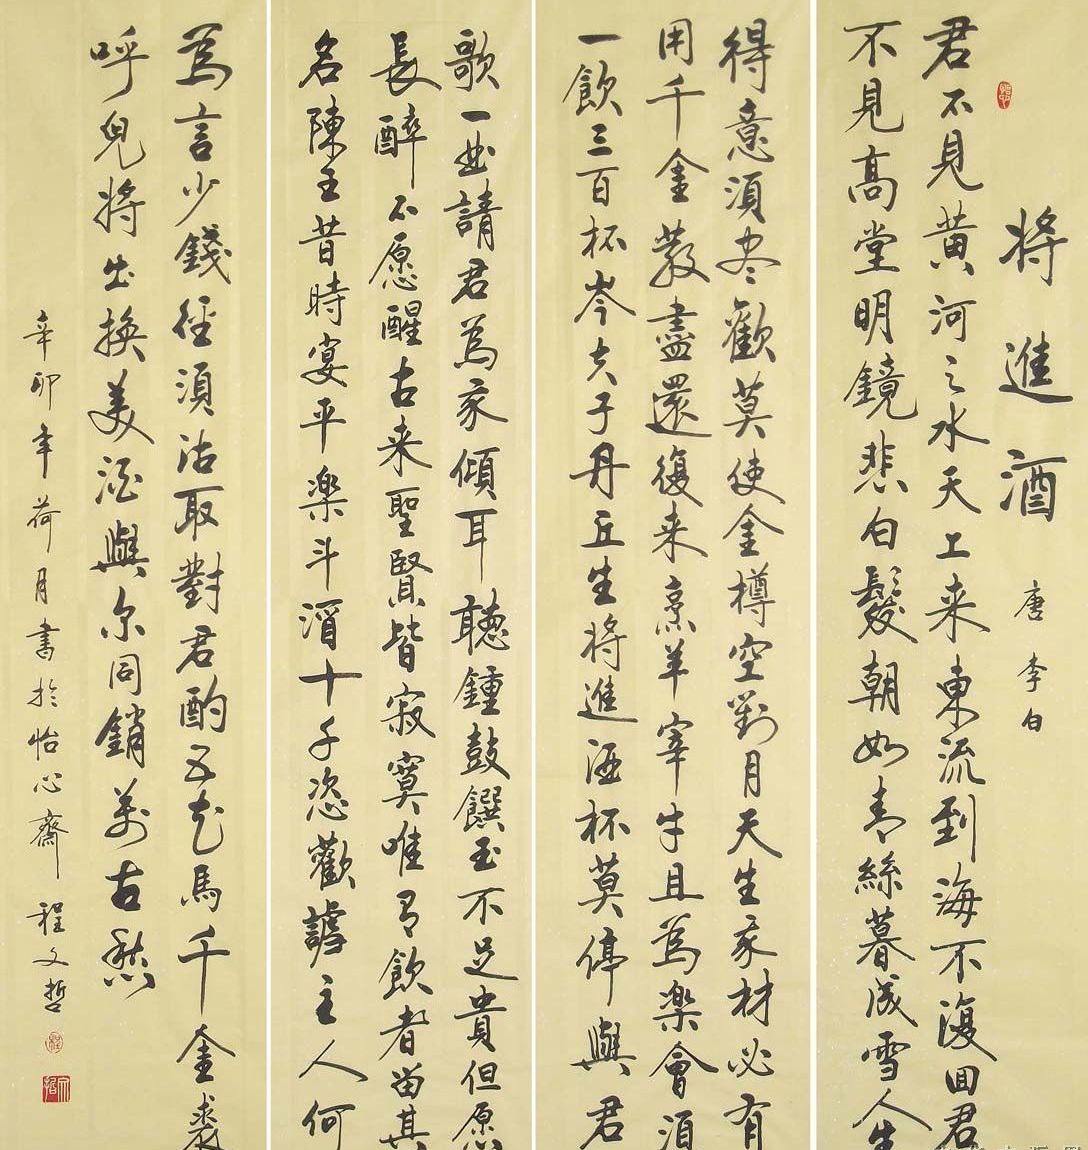 将進酒 唐 李白
君不見黄河之水天上来東流到海不復回君
不見高堂明鏡悲白髮朝如青絲暮成雪人生
得意須尽歡莫使金樽空對月天生我材必有
用千金散盡還復来烹羊宰牛且為楽會須
一飲三百杯岑夫子丹丘生将進酒杯莫停與君
歌一曲請君為我傾耳聽鍾鼓饌玉不足貴但愿
長醉不愿醒古来聖賢皆寂寞唯有飲者留其
名陳王昔時宴平楽斗酒十千恣歡謔主人何
為言少錢径須沽取對君酌五花馬千金裘
呼兒将出換美酒與尔同銷萬古愁
辛卯年荷月書於怡心齋 程文哲